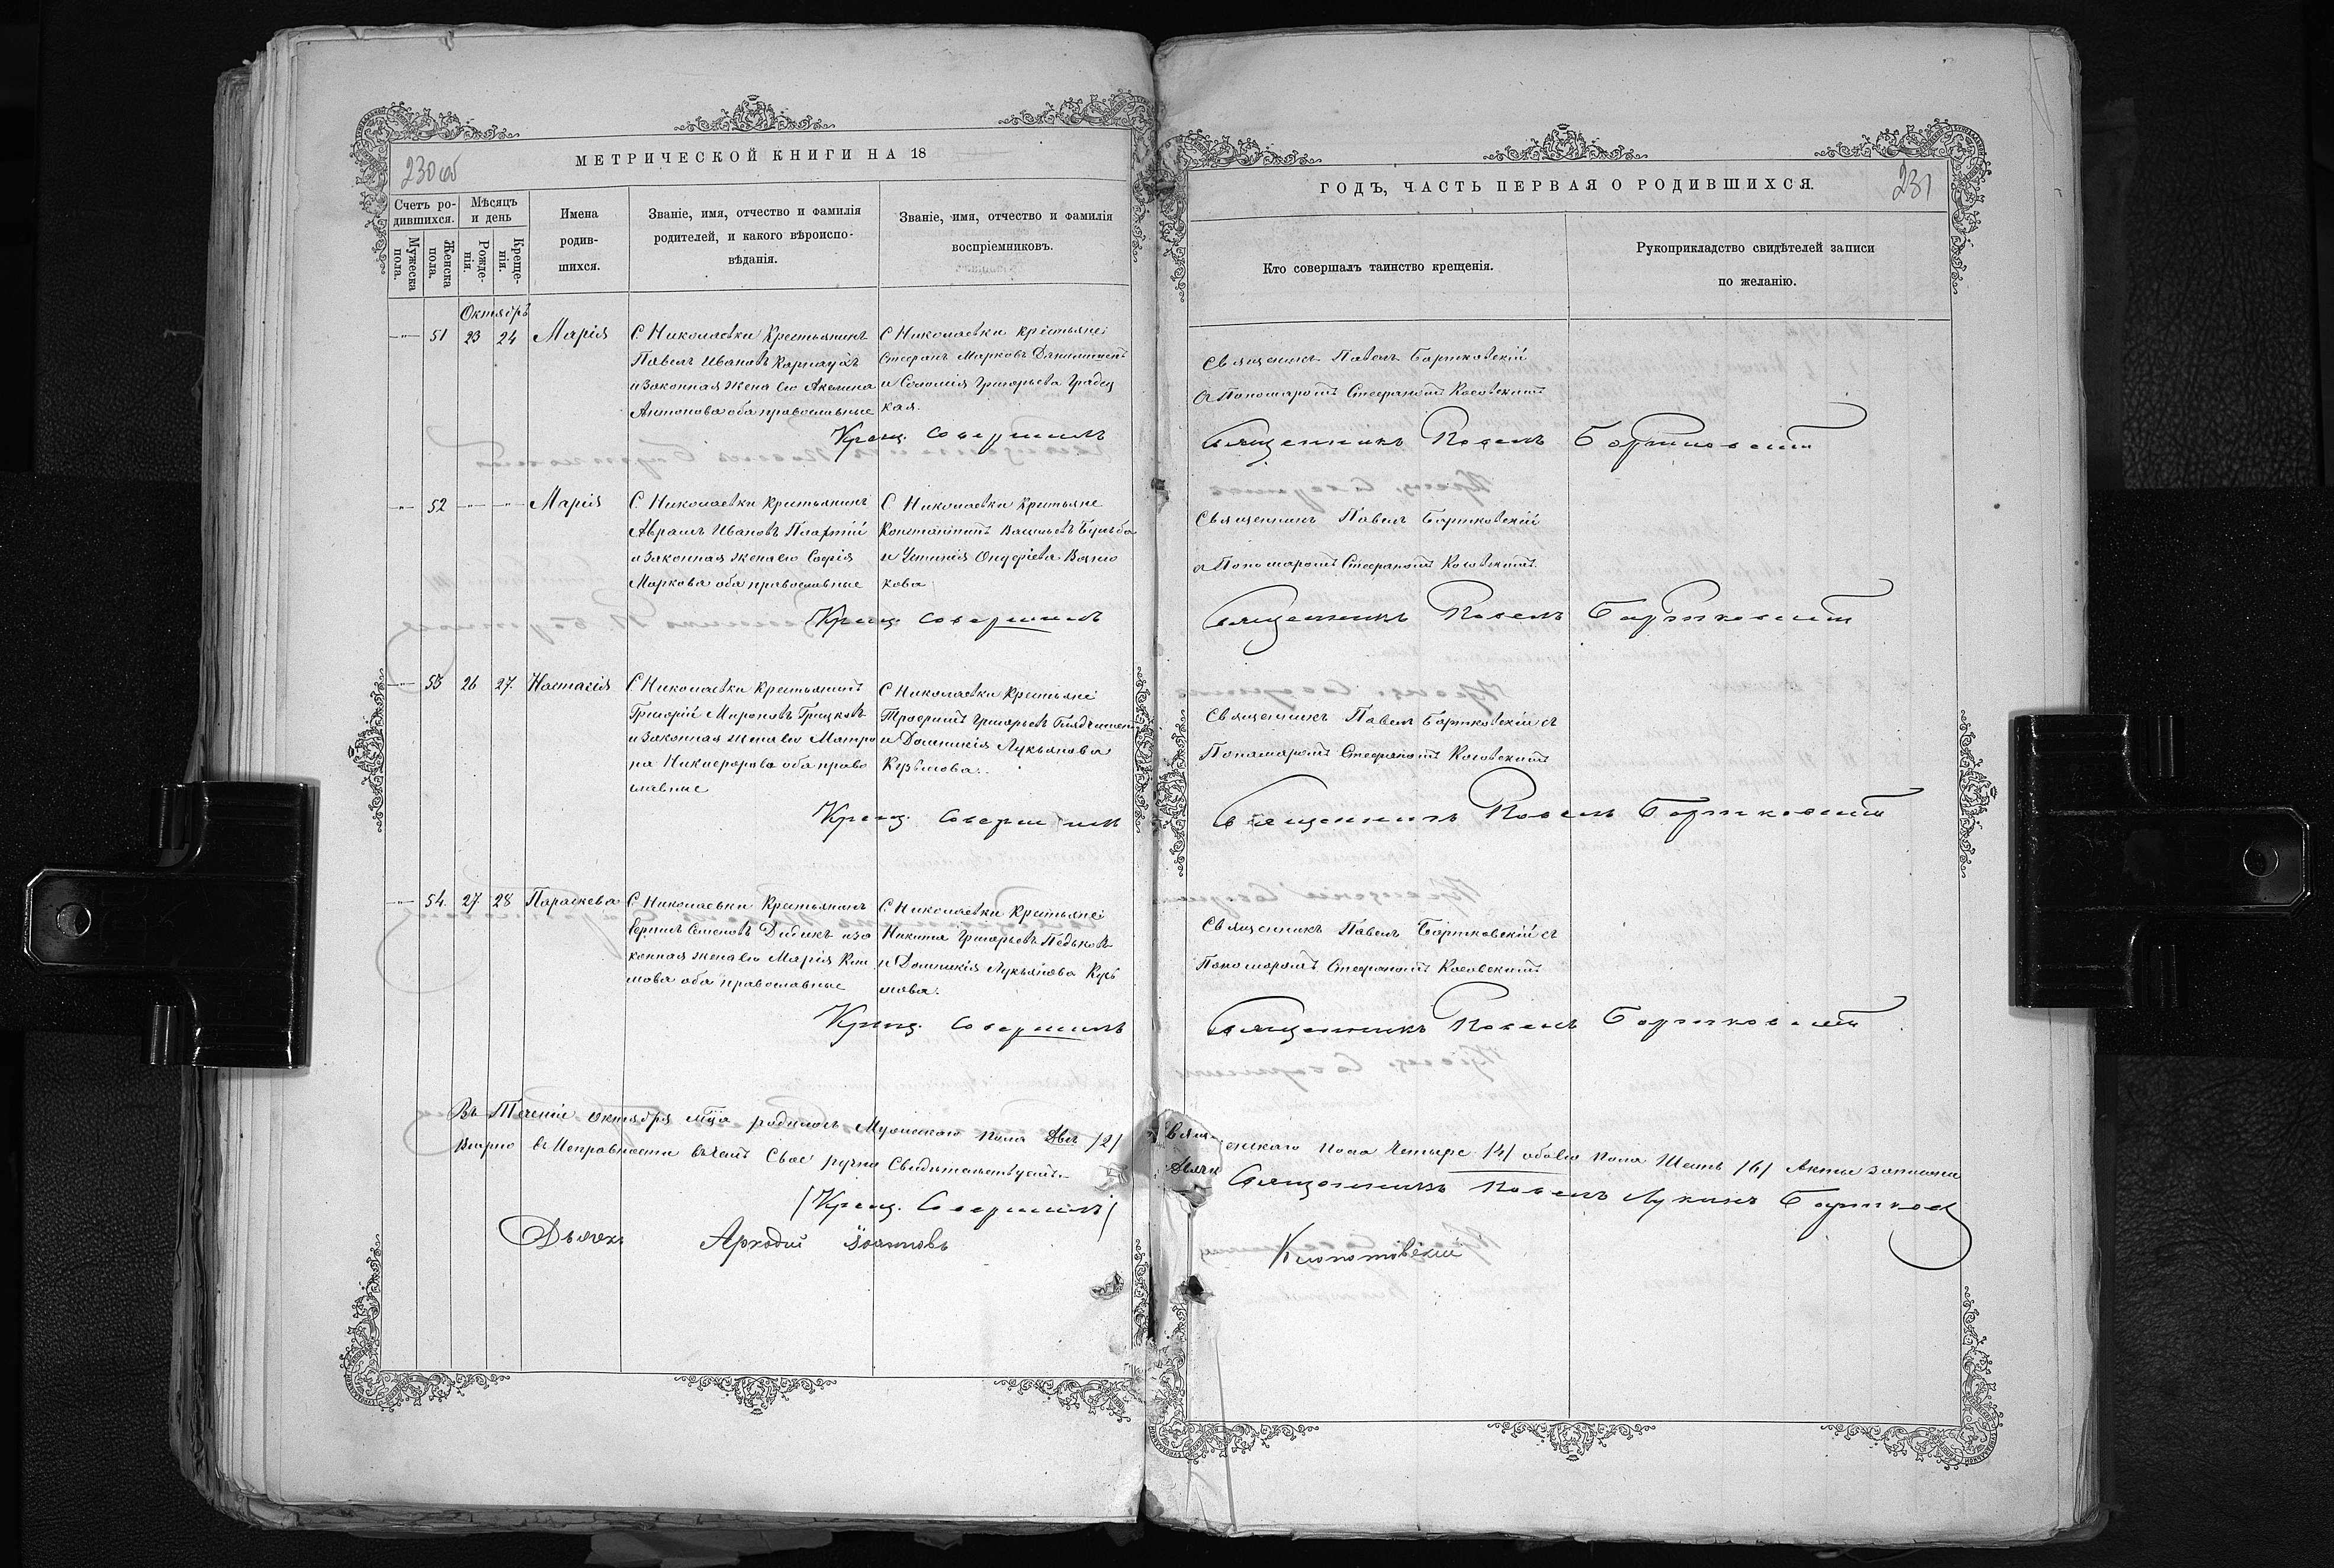 230 об
МЕТРИЧЕСКОЙ КНИГИ НА 18
Счетъ ро-
дившихся.
Мужеска
пола.
Женска
пола.
Мѣсяцъ
и день
Рожде-
нія.
Креще-
нія.
Имена
родив-
шихся.
Званіе, имя, отчество и фамилія
родителей, и какого вѣроиспо-
вѣданія.
Званіе, имя, отчество и фамилія
воспріемниковъ.
Октябрь
51 23 24 Марія
С Николаевки Крестьянинъ
Павелъ Ивановъ
и законная жена его Акелина
Антонова оба православные
С Николаевки крестьяне
Стефанъ Марковъ
и Соломія Григорьева Градец
кая.
Крещ. Совершилъ
52 Марія
С Николаевки Крестьянинъ
Аврамъ Ивановъ
и законная жена его Софія
Маркова оба православные
С Николаевки Крестьяне
Константинъ Васильевъ
и Устинія Онуфріева
кова
Крещ. Совершилъ
53 26 27. Настасія
С Николаевки Крестьянинъ
Григорій Мироновъ Грицковъ
и законная жена его Матро
на Никифорова оба право
славные
С Николаевки Крестьяне
Трофимъ Григорьевъ
и Домникія Лукьянова
Кузьмова.
Крещ. Совершилъ
54. 27 28 Параскева
С Николаевки Крестьянинъ
Семеновъ Дидыкъ и за
конная жена его Марія Кли
мова оба православные
С Николаевки Крестьяне
Никита Григорьевъ Педьковъ
и Домникія Лукьянова Кузь
мова.
Крещ. Совершилъ
Въ Теченіе октября мца родилось Мужескаго пола Двѣ /2/
Вѣрно въ Исправности
(Крещ. Совершилъ)
Дьячекъ Аркадій Іоанновъ
ГОДЪ, ЧАСТЬ ПЕРВАЯ О РОДИВШИХСЯ.
231
Кто совершалъ таинство крещенія.
Рукоприкладство свидѣтелей записи
по желанію.
Священникъ Павелъ Бартковскій
с Пономаромъ Стефаномъ Косовскимъ
Священникъ Павелъ Бартковскій
Священникъ Павелъ Бартковскій
с Пономаромъ Стефаномъ Косовскимъ
Священникъ Павелъ Бартковскій
Священникъ Павелъ Бартковскій съ
Пономаромъ Стефаномъ Косовскимъ
Священникъ Павелъ Бартковскій
Священникъ Павелъ Бартковскій съ
Пономаромъ Стефаномъ Косовскимъ
Священникъ Павелъ Бартковскій
женскаго пола Четыре /4/ обоего пола Шесть /6/ Акты записаны
Священникъ Павелъ Лукинъ Бартков
Клопотовскій